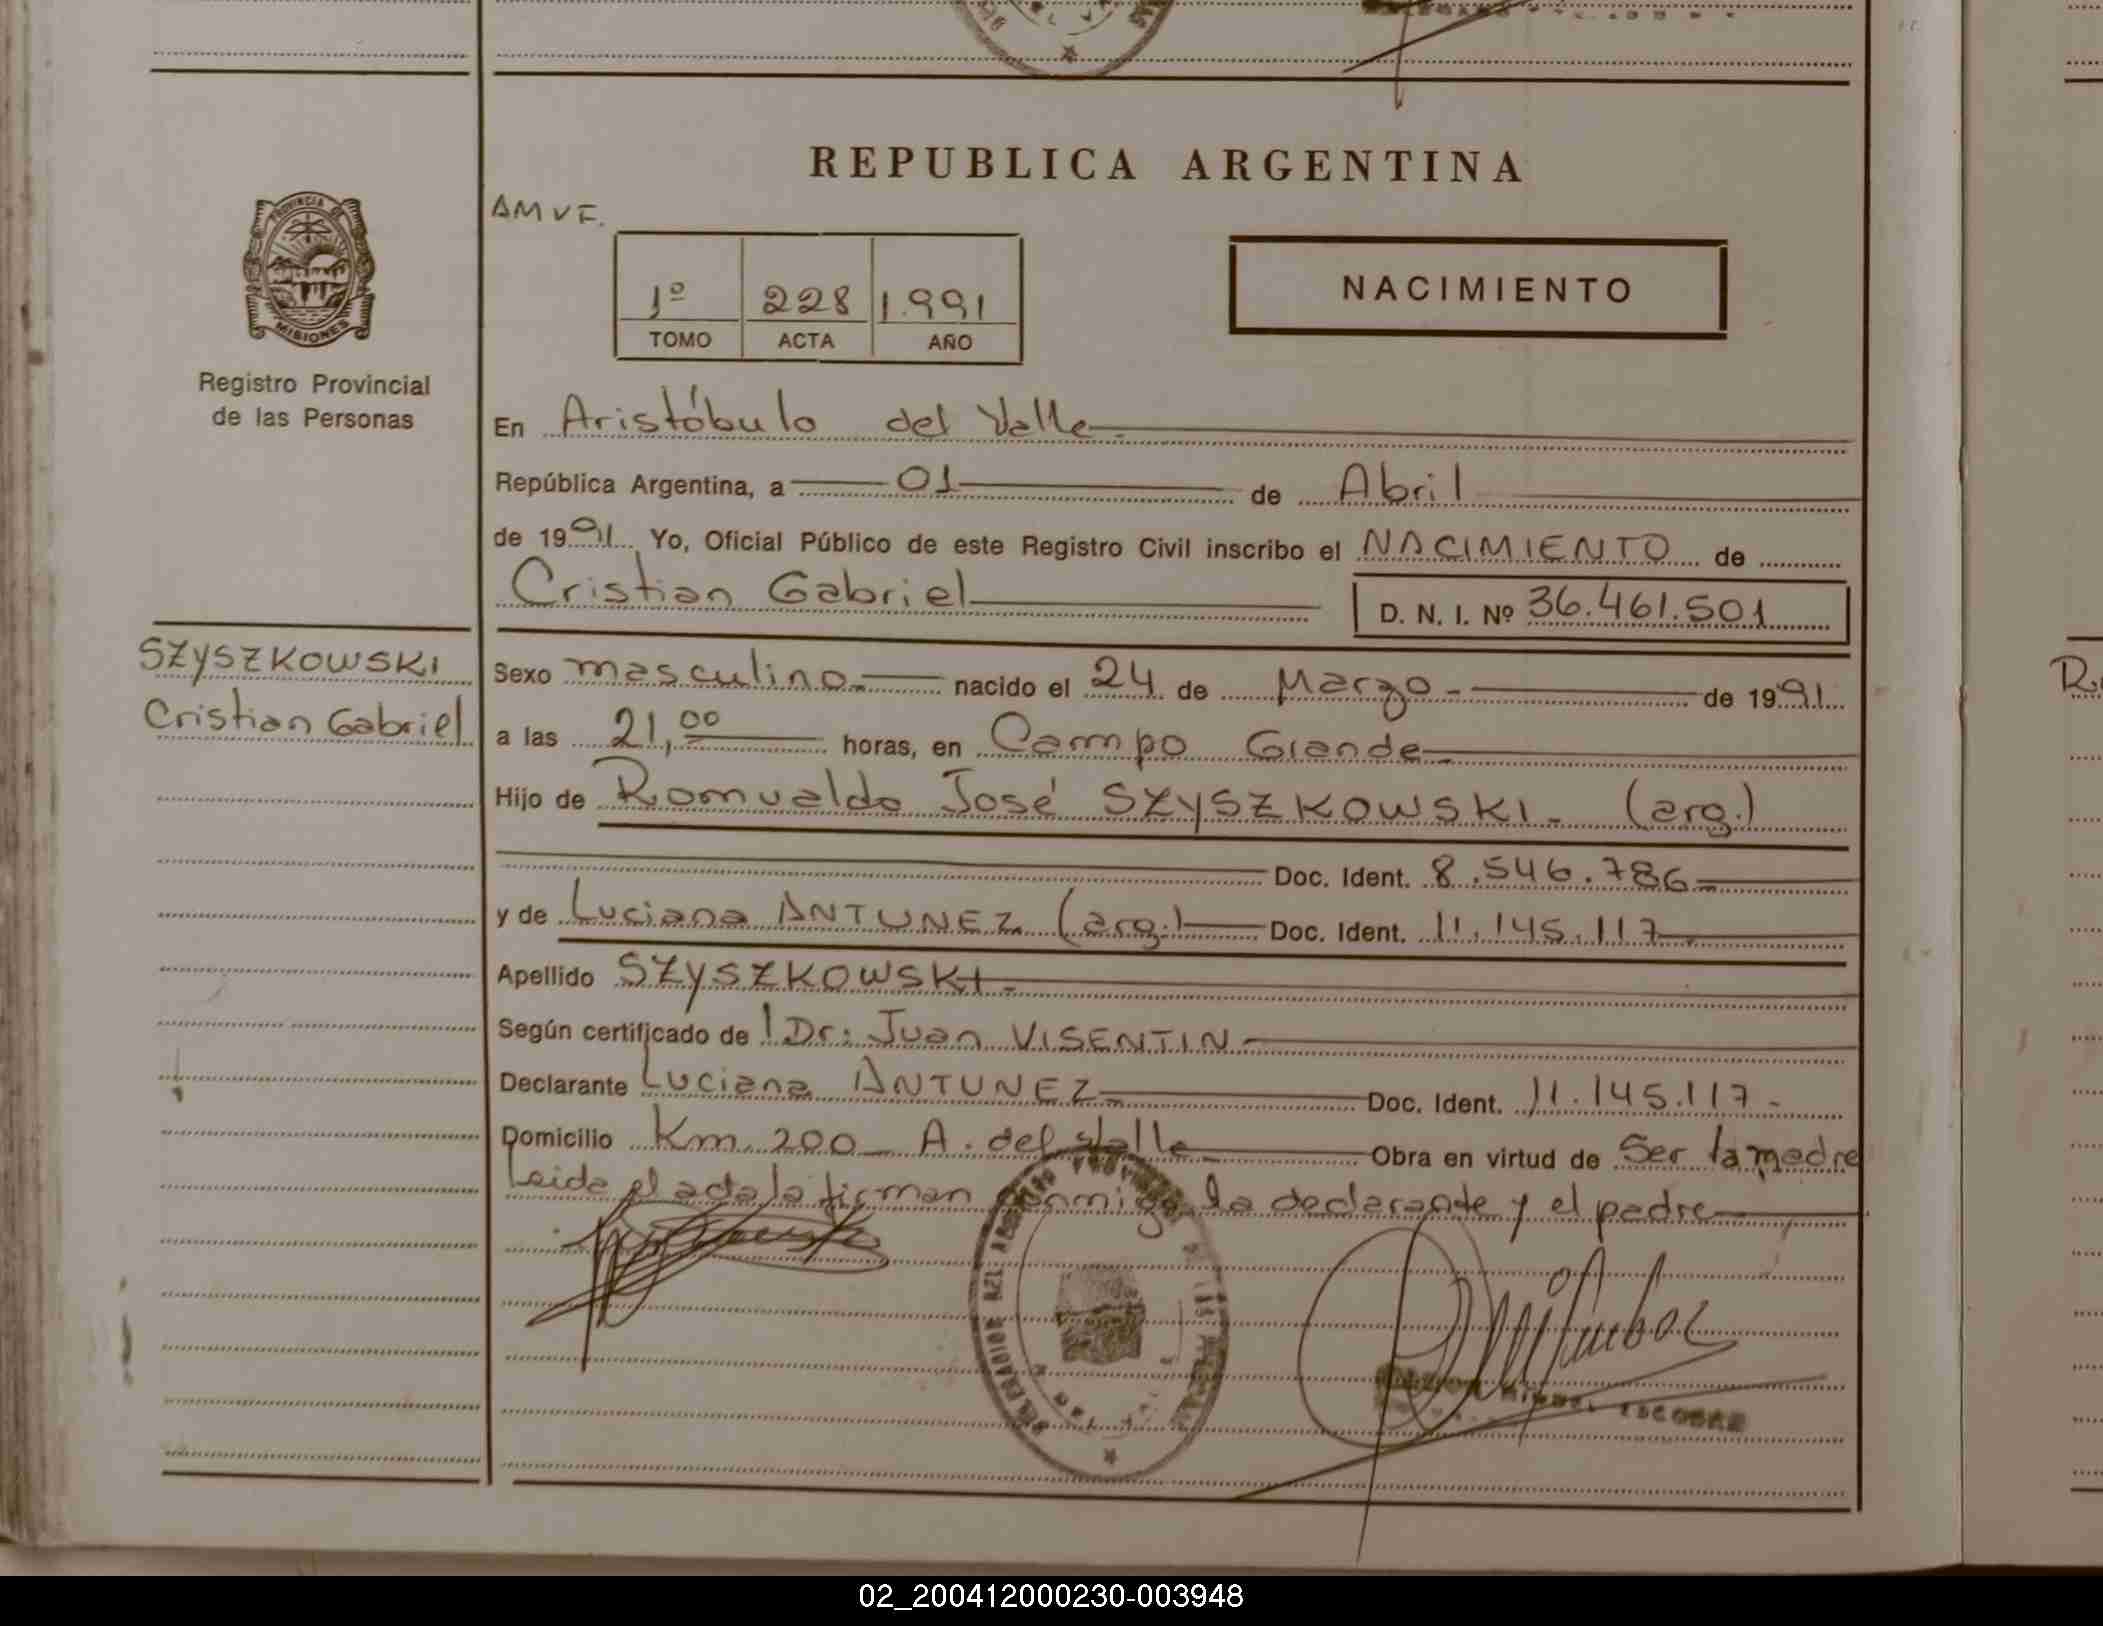 REPUBLICA ARGENTINA
AMVF.
PROVINCIA DE
MISIONES
Registro Provincial
de las Personas
1º 228 1.991
TOMO ACTA AÑO
NACIMIENTO
En Aristóbulo del Valle
República Argentina, a 01 de Abril
de 1991 Yo, Oficial Público de este Registro Civil inscribo el NACIMIENTO de
Cristian Gabriel D. N. I. Nº 36.461.501
SZYSZKOWSKI
Cristian Gabriel
Sexo masculino nacido el 24 de Marzo de 1991
a las 21,00 horas, en Campo Grande
Hijo de Romualdo José SZYSZKOWSKI (arg.)
Doc. Ident. 8.546.786
y de Luciana ANTUNEZ (arg.) Doc. Ident. 11.145.117
Apellido SZYSZKOWSKI
Según certificado del Dr: Juan VISENTIN
Declarante Luciana ANTUNEZ Doc. Ident. 11.145.117
Domicilio Km. 200 A. del Valle Obra en virtud de Ser la madre
Leida el acta la firman conmigo la declarante y el padre
ESCOBAR
02_200412000230-003948